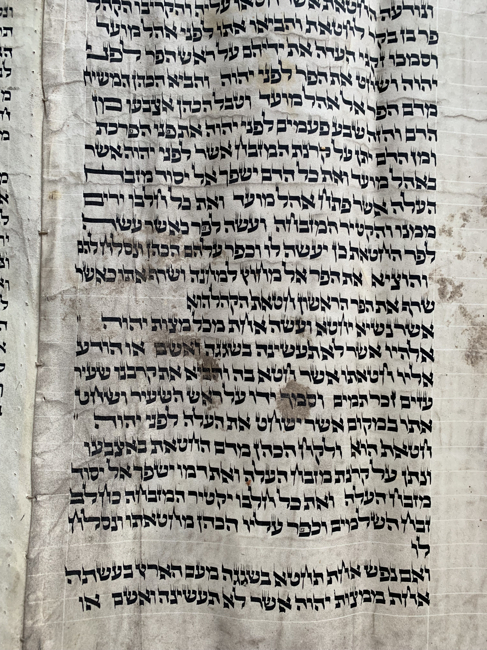 ונודעה החטאת אשר חטאו עליה והקריבו הקהל
פר בן בקר לחטאת והביאו אתו לפני אהל מועד
וסמכו זקני העדה את ידיהם על ראש הפר לפני
יהוה ושחט את הפר לפני יהוה והביא הכהן המשיח
מדם הפר אל אהל מועד וטבל הכהן אצבעו מן
הדם והזה שבע פעמים לפני יהוה את פני הפרכת
ומן הדם יתן על קרנת המזבח אשר לפני יהוה אשר
באהל מועד ואת כל הדם ישפך אל יסוד מזבח
העלה אשר פתח אהל מועד ואת כל חלבו ירים
ממנו והקטיר המזבחה ועשה לפר כאשר עשה
לפר החטאת כן יעשה לו וכפר עלהם הכהן ונסלח להם
והוציא את הפר אל מחוץ למחנה ושרף אתו כאשר
שרף את הפר הראשון חטאת הקהל הוא
אשר נשיא יחטא ועשה אחת מכל מצות יהוה
אלהיו אשר לא תעשינה בשגגה ואשם או הודע
אליו חטאתו אשר חטא בה והביא את קרבנו שעיר
עזים זכר תמים וסמך ידו על ראש השעיר ושחט
אתו במקום אשר ישחט את העלה לפני יהוה
חטאת הוא ולקח הכהן מדם החטאת באצבעו
ונתן על קרנת מזבח העלה ואת דמו ישפך אל יסוד
מזבח העלה ואת כל חלבו יקטיר המזבחה כחלב
זבח השלמים וכפר עליו הכהן מחטאתו ונסלח
לו
ואם נפש אחת תחטא בשגגה מעם הארץ בעשתה
אחת ממצות יהוה אשר לא תעשינה ואשם או